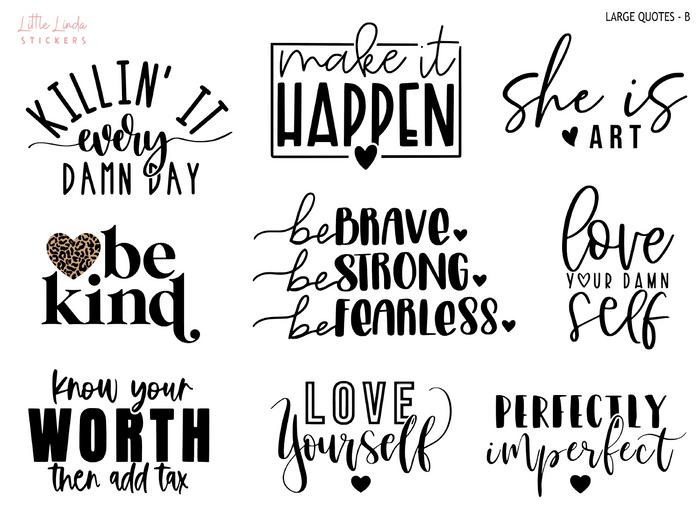 Little Linda
STICKERS
LARGE QUOTES - B
KILLIN' IT
every
DAMN DAY
make it
HAPPEN
she is
ART
be
kind
be BRAVE
be STRONG
be FEARLESS
love
YOUR DAMN
self
know your
WORTH
then add tax
LOVE
Yourself
PERFECTLY
imperfect